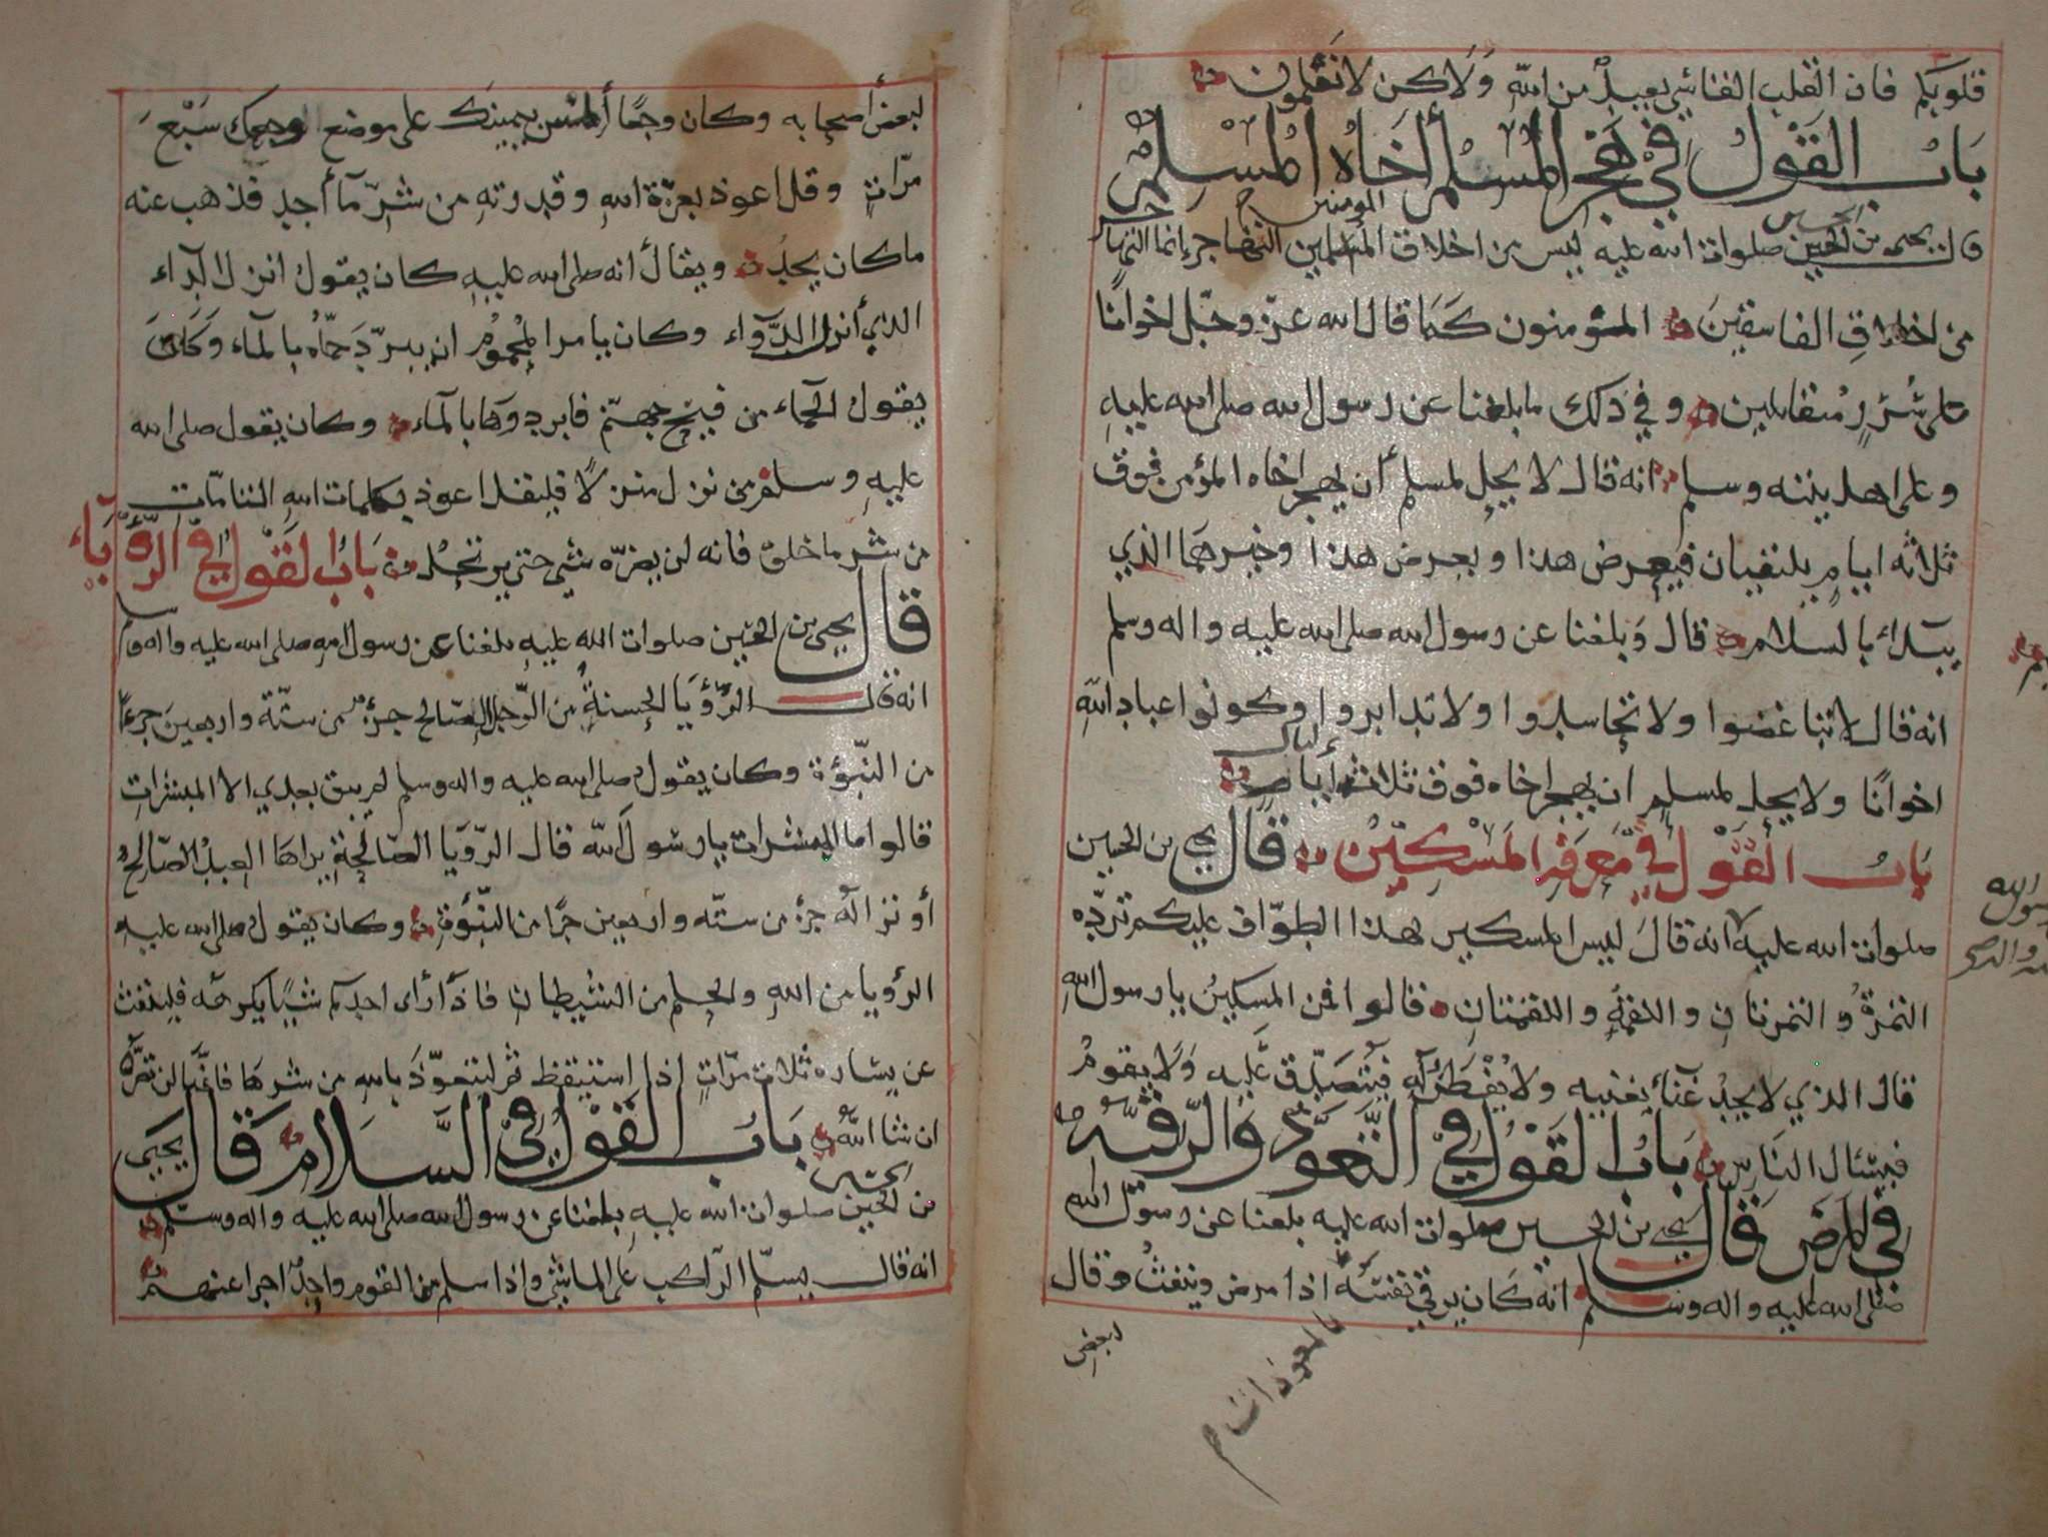 قلوبكم فان القلب القاسي بعيد من الله ولاكن لا تعلمون
باب القول في هجر المسلم أخاه المسلم
قال يحيى بن الحسين صلوات الله عليه ليس من اخلاق المسلمين التهاجر انما التهاجر
المومنين
من اخلاق الفاسقين المؤمنون كما قال الله عز وجل اخوانا
على سرر متقابلين وفي ذلك ما بلغنا عن رسول الله صلى الله عليه
وعلى اهل بيته وسلم انه قال لا يحل لمسلم أن يهجر اخاه المؤمن فوق
ثلاثه ايام يلتقيان فيعرض هذا ويعرض هذا وخيرهما الذي
يبداء بالسلام قال وبلغنا عن رسول الله صلى الله عليه واله وسلم
انه قال لا تباغضوا ولا تحاسدوا ولا تدابروا وكونوا عباد الله
اخوانا ولا يحل لمسلم ان يهجر اخاه فوق ثلاث أيام
ليال
باب القول في معرفة المسكين قال يحيى بن الحسين
صلوات الله عليه انه قال ليس المسكين بهذا الطواف عليكم ترده
التمرة والتمرتان واللقمة واللقمتان قالوا فمن المسكين يا رسول الله
قال الذي لا يجد غناء يغنيه ولا يفطن له فيتصدق عليه ولا يقوم
فيسئال الناس باب القول في التعوذ والرقية
في المرض قال يحيى بن الحسين صلوات الله عليه بلغنا عن رسول الله
صلى الله عليه واله وسلم انه كان يرقي نفسه اذا مرض وينفث وقال
بالمعوذات
لبعض
لبعض أصحابه وكان وجعا ألمس بيمينك على موضع وجعك سبع
مرات وقل اعوذ بعزة الله وقدرته من شر ما أجد فذهب عنه
ما كان يجد ويقال أنه صلى الله عليه كان يقول انزل الداء
الذي أنزل الدواء وكان يامر المحموم ان يبرد حماه بالماء وكان
يقول الحماء من فيح جهنم فابردوها بالماء وكان يقول صلى الله
عليه وسلم من نزل منزلا فليقل اعوذ بكلمات الله التامات
من شر ما خلق فانه لن يضره شي حتى يرتحل باب القول في الرؤياء
قال يحيى بن الحسين صلوات الله عليه بلغنا عن رسول الله صلى الله عليه واله وسلم
انه قال الرؤيا الحسنة من الرجل الصالح جزء من ستة واربعين جزءا
من النبؤة وكان يقول صلى الله عليه واله وسلم لم يبق بعدي الا المبشرات
قالوا اما المبشرات يا رسول الله قال الرؤيا الصالحة يراها العبد الصالح
أو ترا له جزء من ستة واربعين جزا من النبؤة وكان يقول صلى الله عليه
الرؤيا من الله والحلم من الشيطان فاذا راى احدكم شيئا يكرهه فلينفث
عن يساره ثلاث مرات إذا استيقظ ثم ليتعوذ بالله من شرها فانها لن تضره
ان شا الله باب القول في السلام قال يحيى
بن الحسين صلوات الله عليه بلغنا عن رسول الله صلى الله عليه واله وسلم
انه قال يسلم الراكب على الماشي واذا سلم من القوم واحد اجزا عنهم